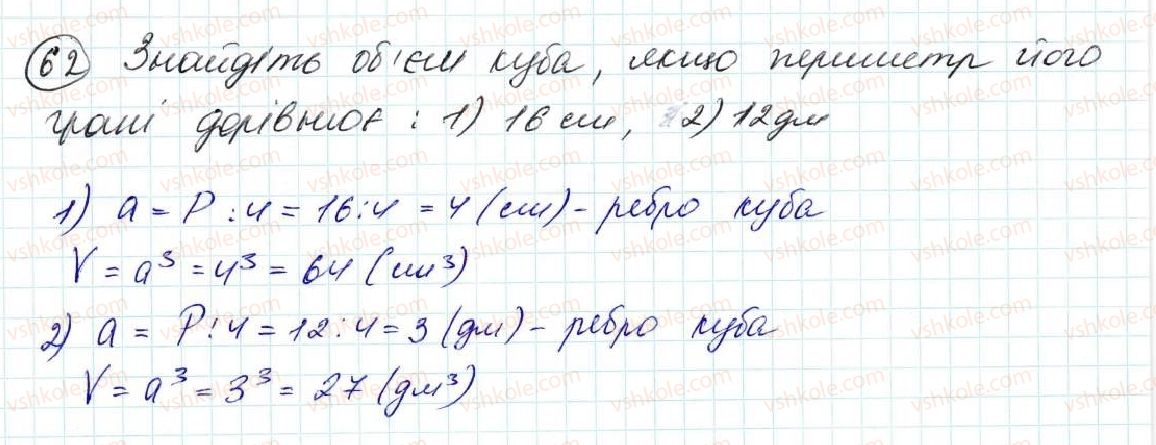 62 Знайдіть об'єм куба, якщо периметр його
грані дорівнює : 1) 16 см, 2) 12 дм
1) a = P : 4 = 16 : 4 = 4 (см) - ребро куба
V = a³ = 4³ = 64 (см³)
2) a = P : 4 = 12 : 4 = 3 (дм) - ребро куба
V = a³ = 3³ = 27 (дм³)